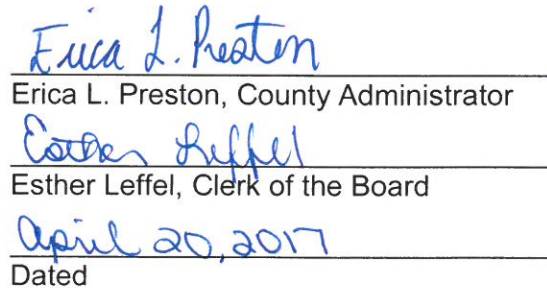 Erica L. Preston
Erica L. Preston, County Administrator
Esther Leffel
Esther Leffel, Clerk of the Board
April 20, 2017
Dated